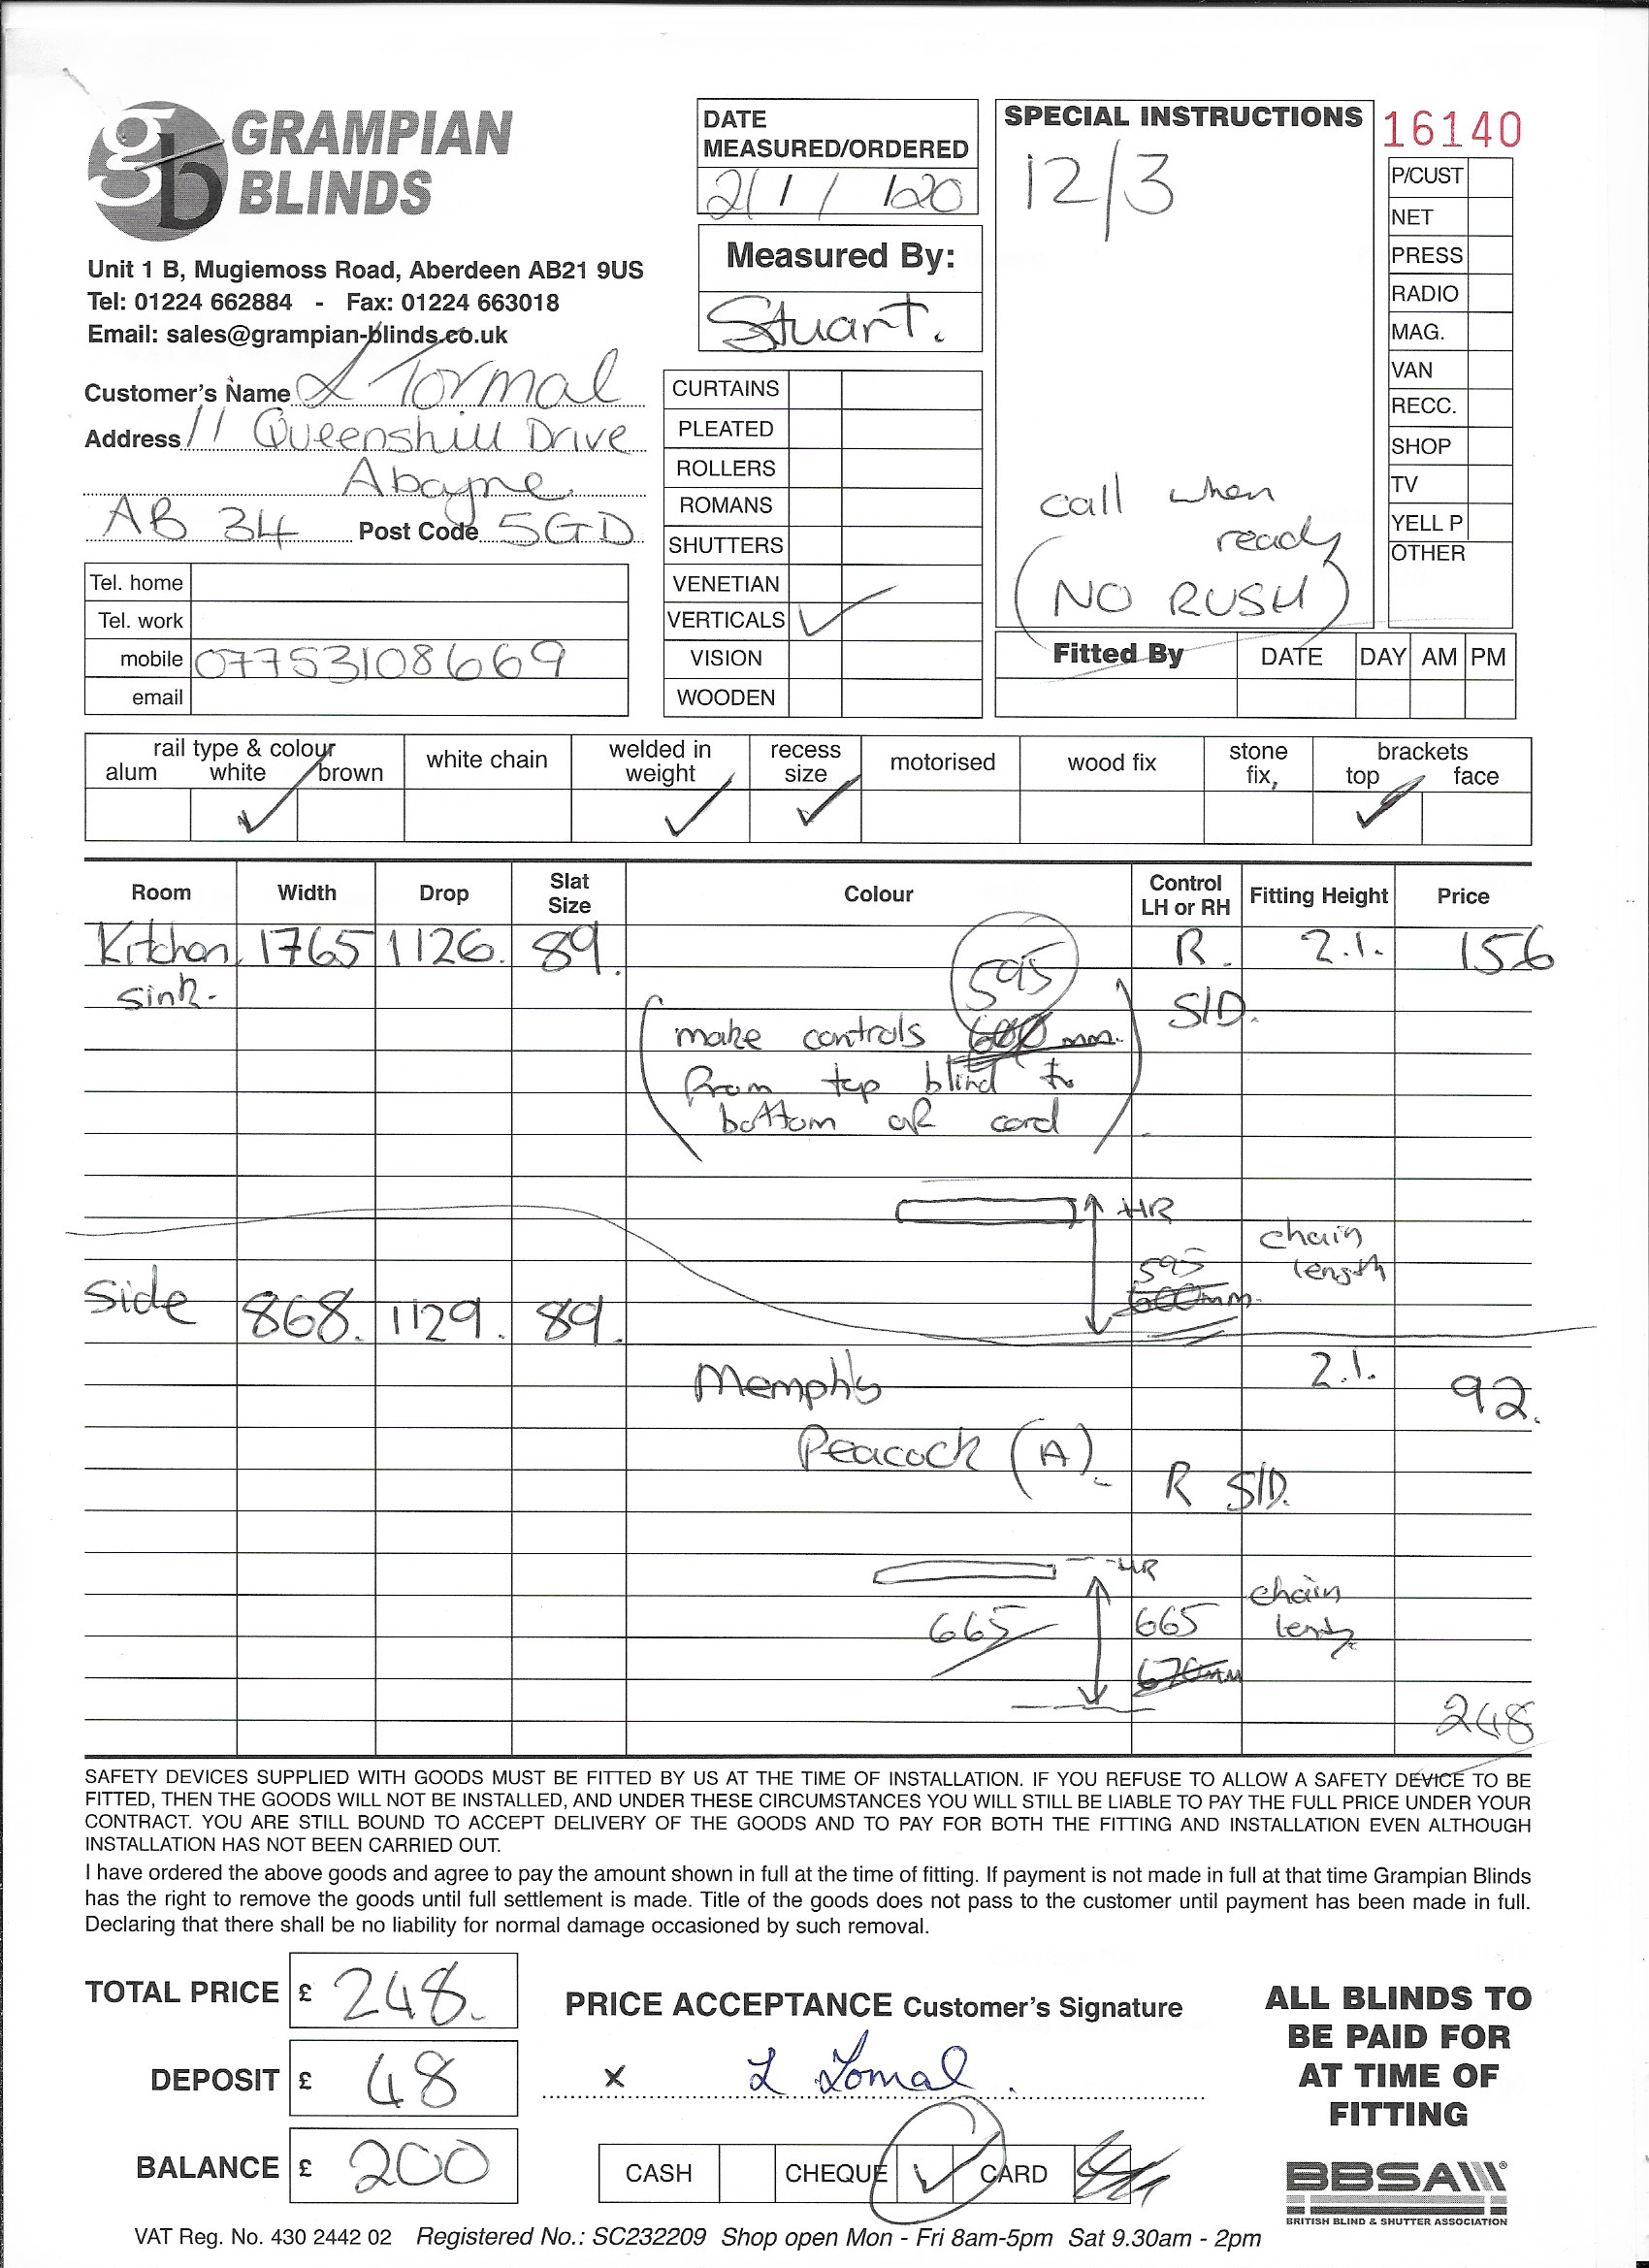 GRAMPIAN
BLINDS
Unit 1 B, Mugiemoss Road, Aberdeen AB21 9US
Tel: 01224 662884 - Fax: 01224 663018
Email: sales@grampian-blinds.co.uk
Customer's Name L Tormal
Address 11 Queenshill Drive
Aboyne
AB 34 Post Code 5GD
Tel. home
Tel. work
mobile 07753108669
email
DATE
MEASURED/ORDERED
2/1/ 120
Measured By:
Stuart.
CURTAINS
PLEATED
ROLLERS
ROMANS
SHUTTERS
VENETIAN
VERTICALS ✓
VISION
WOODEN
SPECIAL INSTRUCTIONS
12/3
call when
ready
(NO RUSH)
16140
P/CUST
NET
PRESS
RADIO
MAG.
VAN
RECC.
SHOP
TV
YELL P
OTHER
Fitted By DATE DAY AM PM
rail type & colour
alum white ✓ brown
white chain
welded in
weight ✓
recess
size ✓
motorised
wood fix
stone
fix,
brackets
top ✓ face
Room Width Drop Slat Size Colour Control LH or RH Fitting Height Price
Kitchen 1765 1126. 89. R. 2.1. 156
sink. 595 S/D.
(make controls 600 mm.
From top blind to
bottom of cord)
HR
chain
595 length
600mm.
Side 868. 1129. 89.
Memphis 2.1. 92.
Peacock (A)
R S/D.
HR
chain
665 665
670mm
248
SAFETY DEVICES SUPPLIED WITH GOODS MUST BE FITTED BY US AT THE TIME OF INSTALLATION. IF YOU REFUSE TO ALLOW A SAFETY DEVICE TO BE
FITTED, THEN THE GOODS WILL NOT BE INSTALLED, AND UNDER THESE CIRCUMSTANCES YOU WILL STILL BE LIABLE TO PAY THE FULL PRICE UNDER YOUR
CONTRACT. YOU ARE STILL BOUND TO ACCEPT DELIVERY OF THE GOODS AND TO PAY FOR BOTH THE FITTING AND INSTALLATION EVEN ALTHOUGH
INSTALLATION HAS NOT BEEN CARRIED OUT.
I have ordered the above goods and agree to pay the amount shown in full at the time of fitting. If payment is not made in full at that time Grampian Blinds
has the right to remove the goods until full settlement is made. Title of the goods does not pass to the customer until payment has been made in full.
Declaring that there shall be no liability for normal damage occasioned by such removal.
TOTAL PRICE £ 248.
DEPOSIT £ 48
BALANCE £ 200
PRICE ACCEPTANCE Customer's Signature
x L Tomal.
CASH CHEQUE ✓ CARD
ALL BLINDS TO
BE PAID FOR
AT TIME OF
FITTING
BBSA
BRITISH BLIND & SHUTTER ASSOCIATION
VAT Reg. No. 430 2442 02 Registered No.: SC232209 Shop open Mon - Fri 8am-5pm Sat 9.30am - 2pm